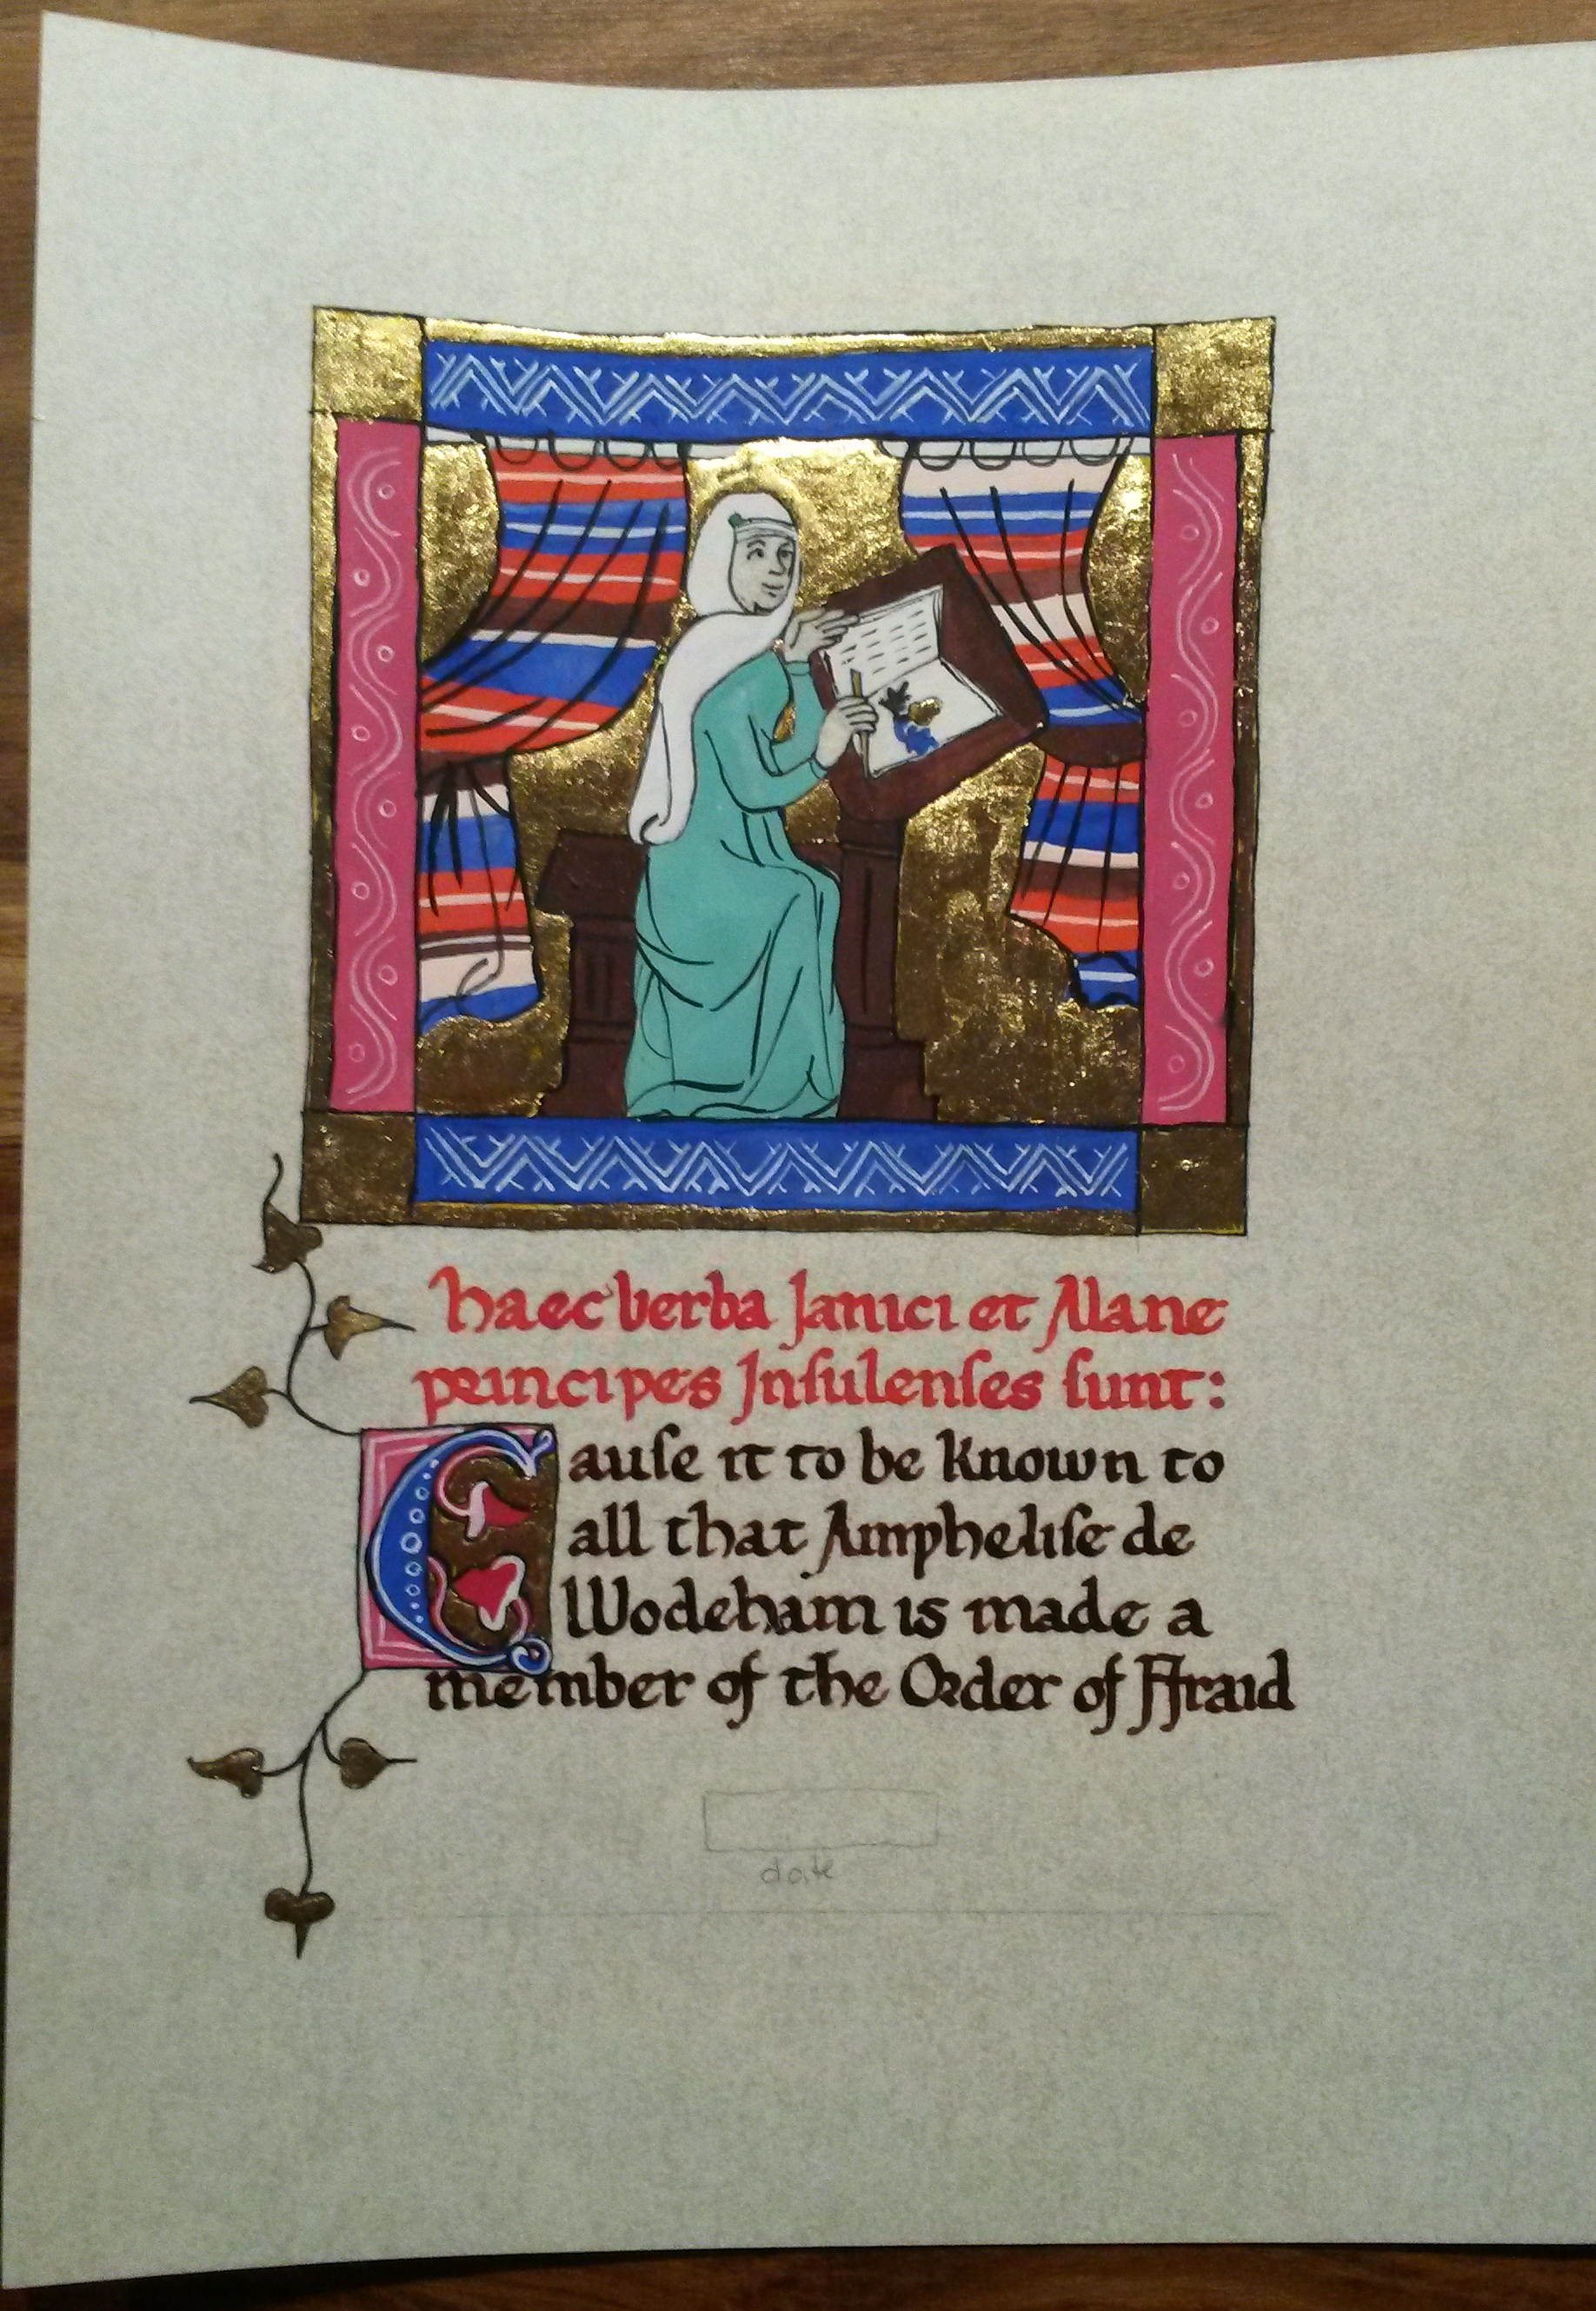 haec verba Janici et Alane
principes Inſulenſes ſunt:
Cauſe it to be known to
all that Ampheliſe de
Wodeham is made a
member of the Order of Ffraid
date